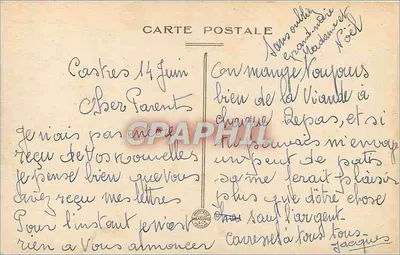 CARTE POSTALE
Sans oublier
grand-mère
Madame et
Noël
Castres 14 Juin
Cher Parents
Je n'ais pas encore
reçu de vos nouvelles
je pense bien que vous
avez reçu mes lettres
Pour l'instant je n'ais
rien a vous annoncer
On mange toujours
bien de la viande à
chaque Repas, et si
tu pouvais m'envoye
un peut de pates
sa me ferait plaisir
plus que dôtre chose
sauf l'argent
Caresses à tous tous
Jacques
CPARAMA CPAPHIL